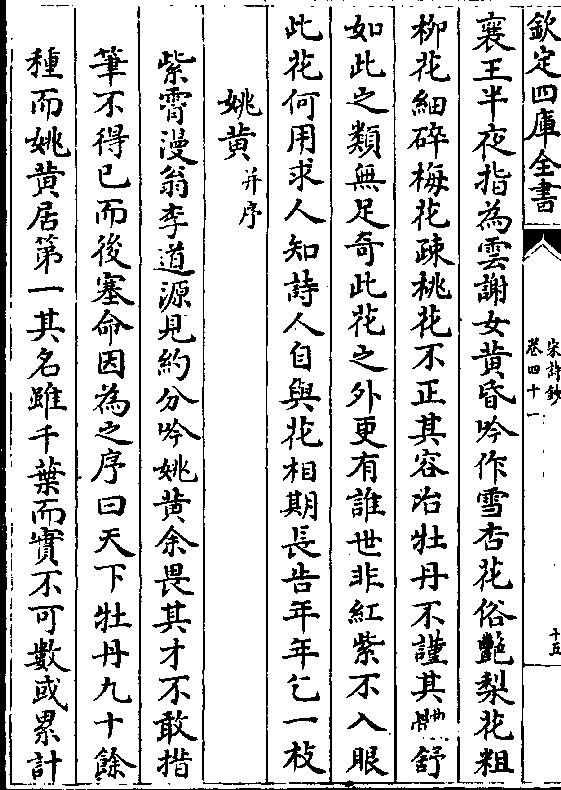 欽定四庫全書
宋詩鈔
卷四十一
十五
襄王半夜指為雲謝女黄昏吟作雪杏花俗艷梨花粗
柳花細碎梅花疎桃花不正其容冶牡丹不謹其舒
如此之類無足奇此花之外更有誰世非紅紫不入眼
此花何用求人知詩人自與花相期長告年年乞一枝
姚黄并序
紫霄漫翁李道源見約分吟姚黄余畏其才不敢措
筆不得已而後塞命因為之序曰天下牡丹九十餘
種而姚黄居第一其名雖千葉而實不可數或累計